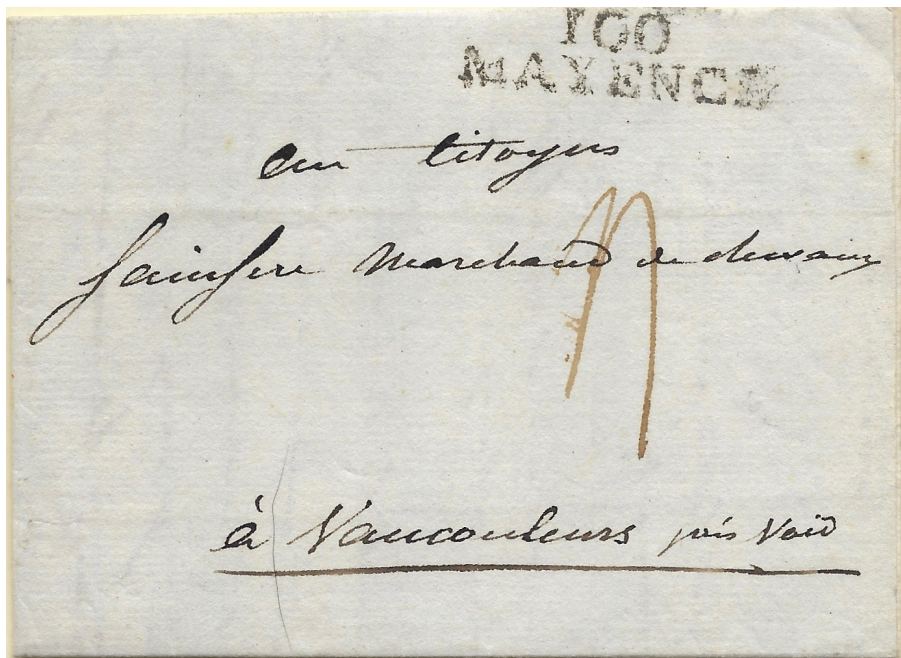 100
MAYENCE
au Citoyens
Sainsere Marchand de chevaux
à Vaucouleurs près Void